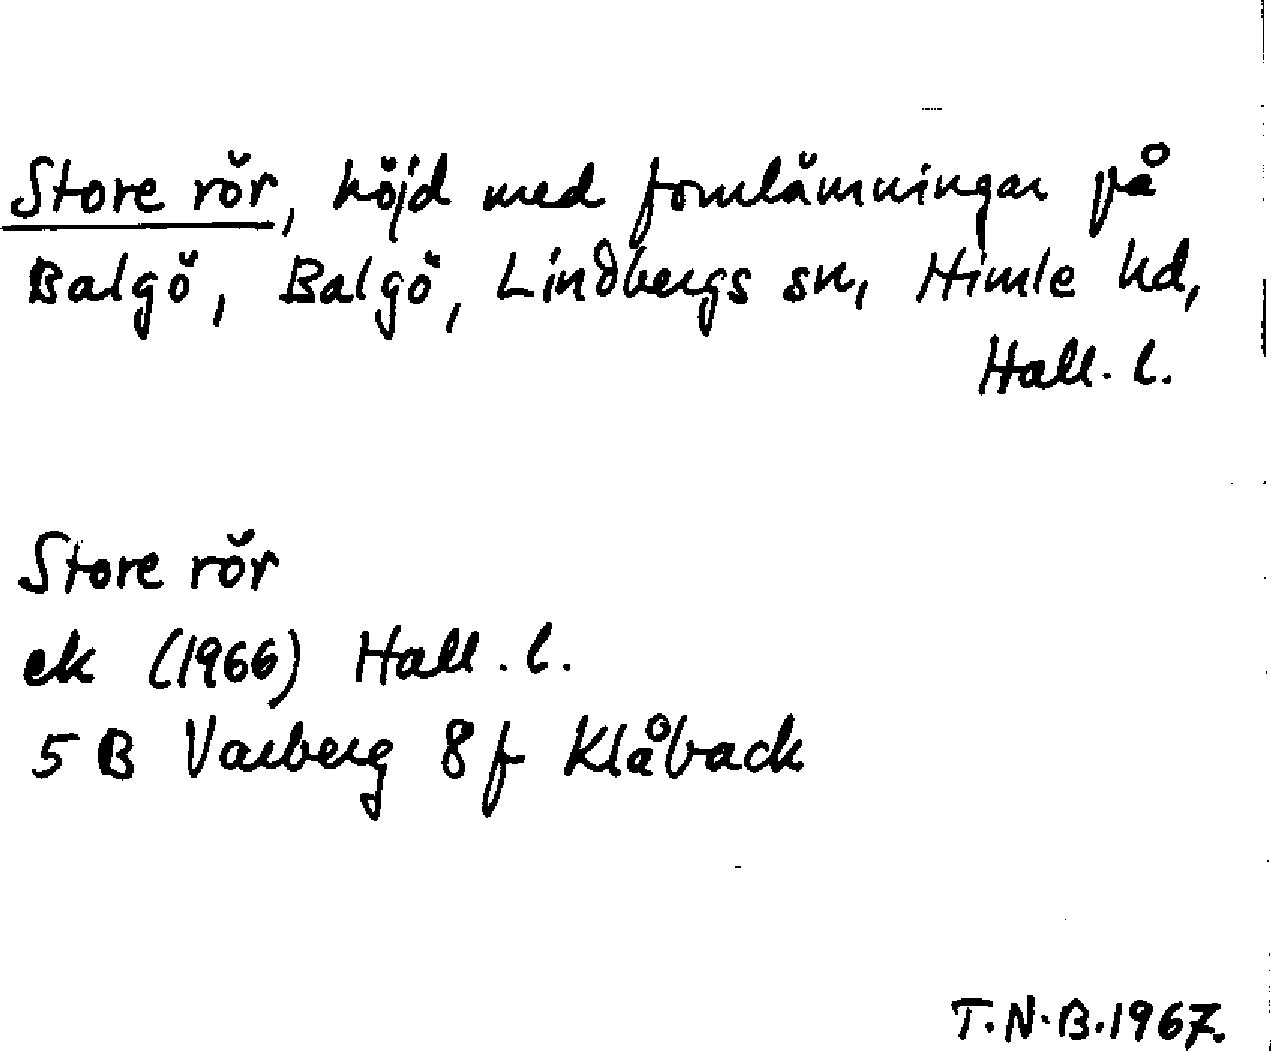 Store rör, höjd med fornlämningar på
Balgö, Balgö, Lindbergs sn, Himle hd,
Hall. l.
Store rör
ek (1966) Hall. l.
5 B Varberg 8 f Klåback
T.N.B. 1967.